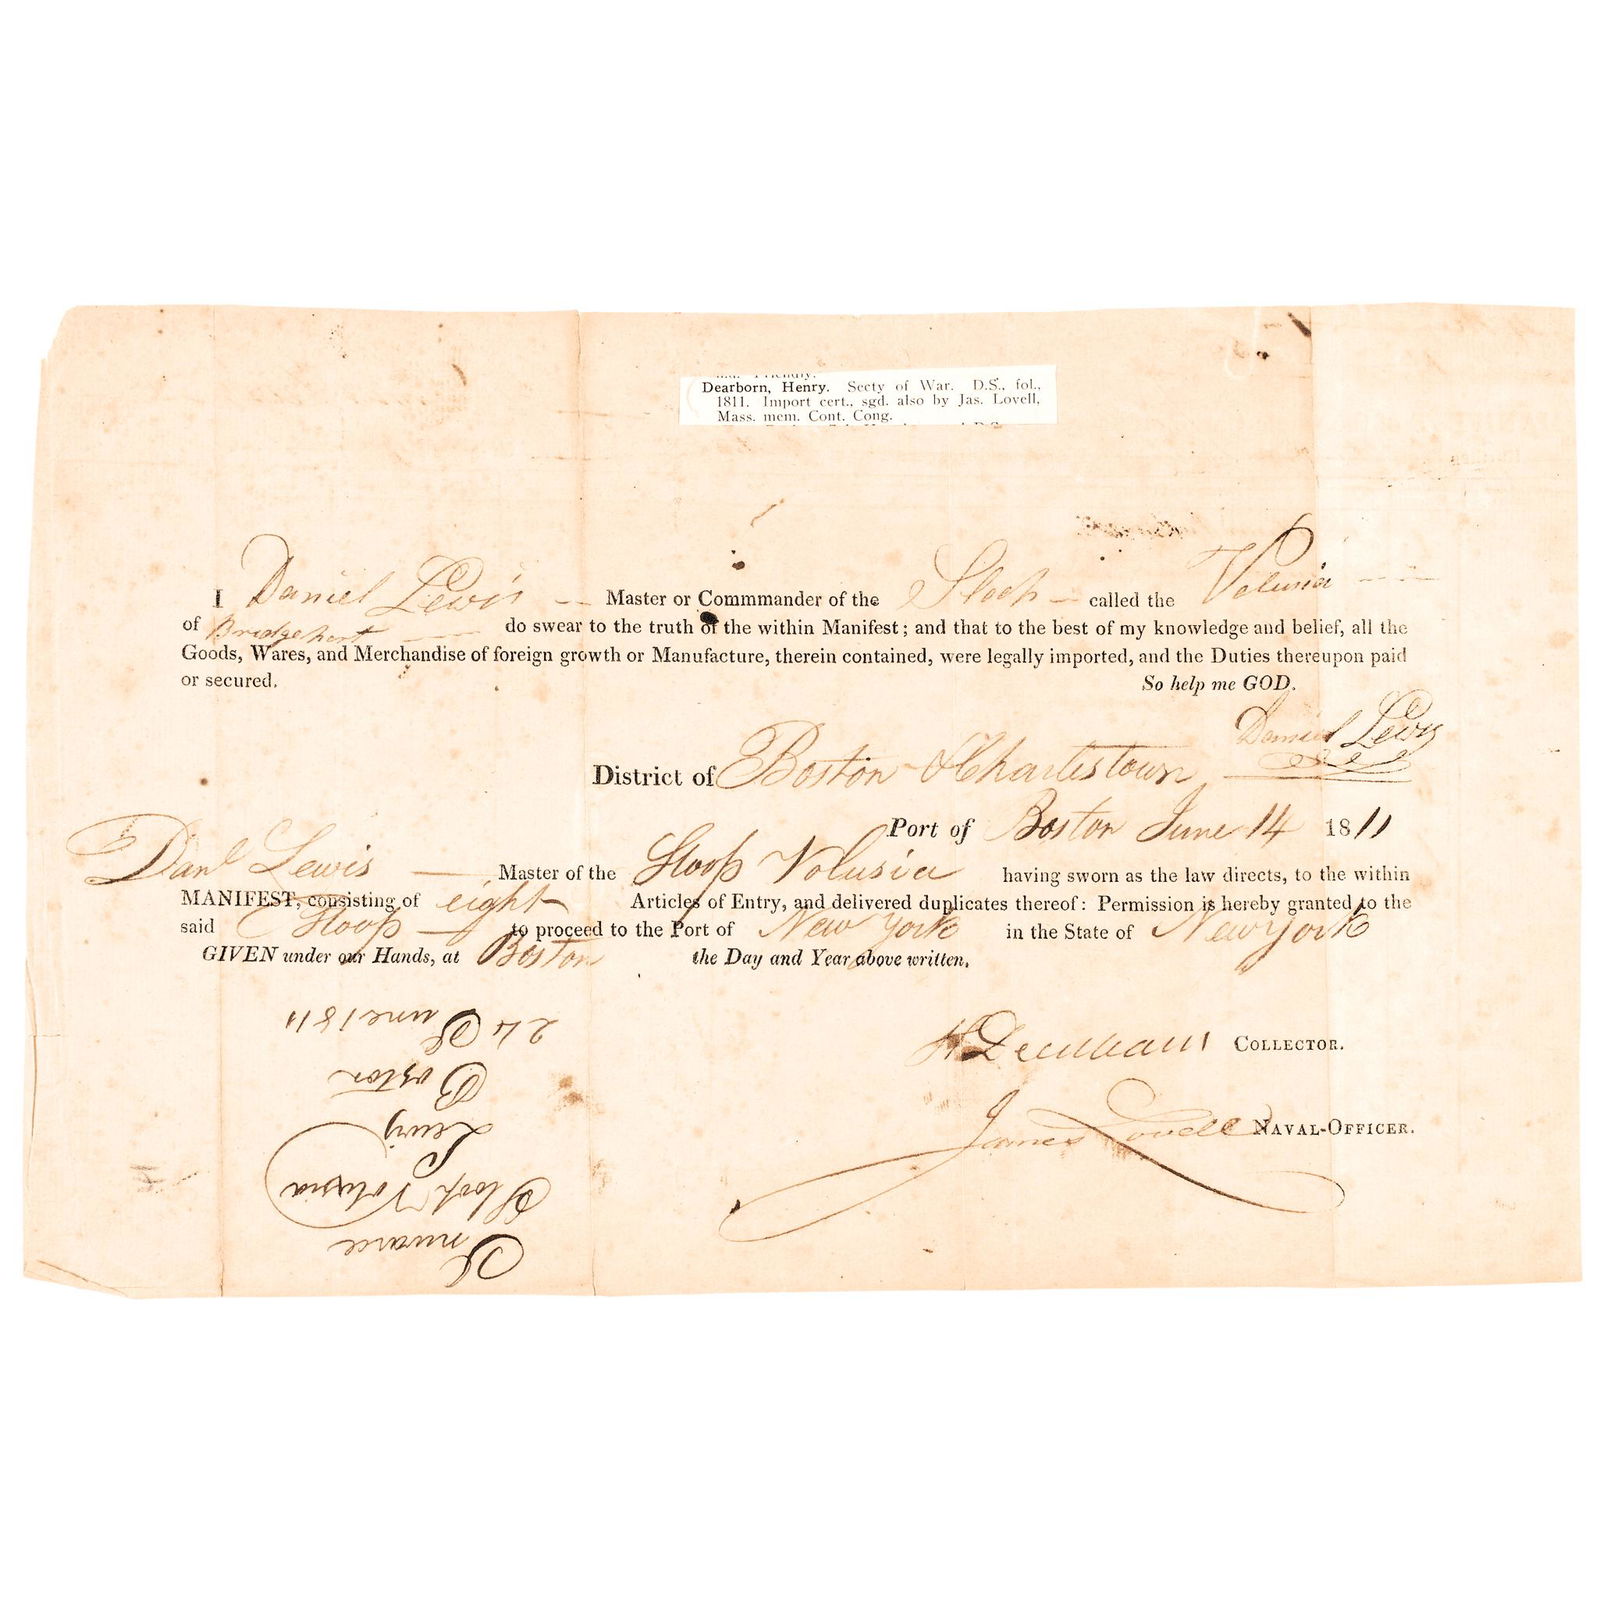 Dearborn, Henry. Secty of War. D.S., fol.,
1811. Import cert., sgd. also by Jas. Lovell,
Mass. mem. Cont. Cong.
I Daniel Lewis Master or Commmander of the Sloop called the Volusia
of Bridgeport do swear to the truth of the within Manifest; and that to the best of my knowledge and belief, all the
Goods, Wares, and Merchandise of foreign growth or Manufacture, therein contained, were legally imported, and the Duties thereupon paid
or secured. So help me GOD.
Daniel Lewis
District of Boston & Charlestown
Port of Boston June 14 1811
Danl Lewis Master of the Sloop Volusia having sworn as the law directs, to the within
MANIFEST, consisting of eight Articles of Entry, and delivered duplicates thereof: Permission is hereby granted to the
said Sloop to proceed to the Port of New York in the State of New York
GIVEN under our Hands, at Boston the Day and Year above written.
H Dearborn COLLECTOR.
James Lovell NAVAL-OFFICER.
Inward
Sloop Volusia
Lewis
Boston
24 June 1811